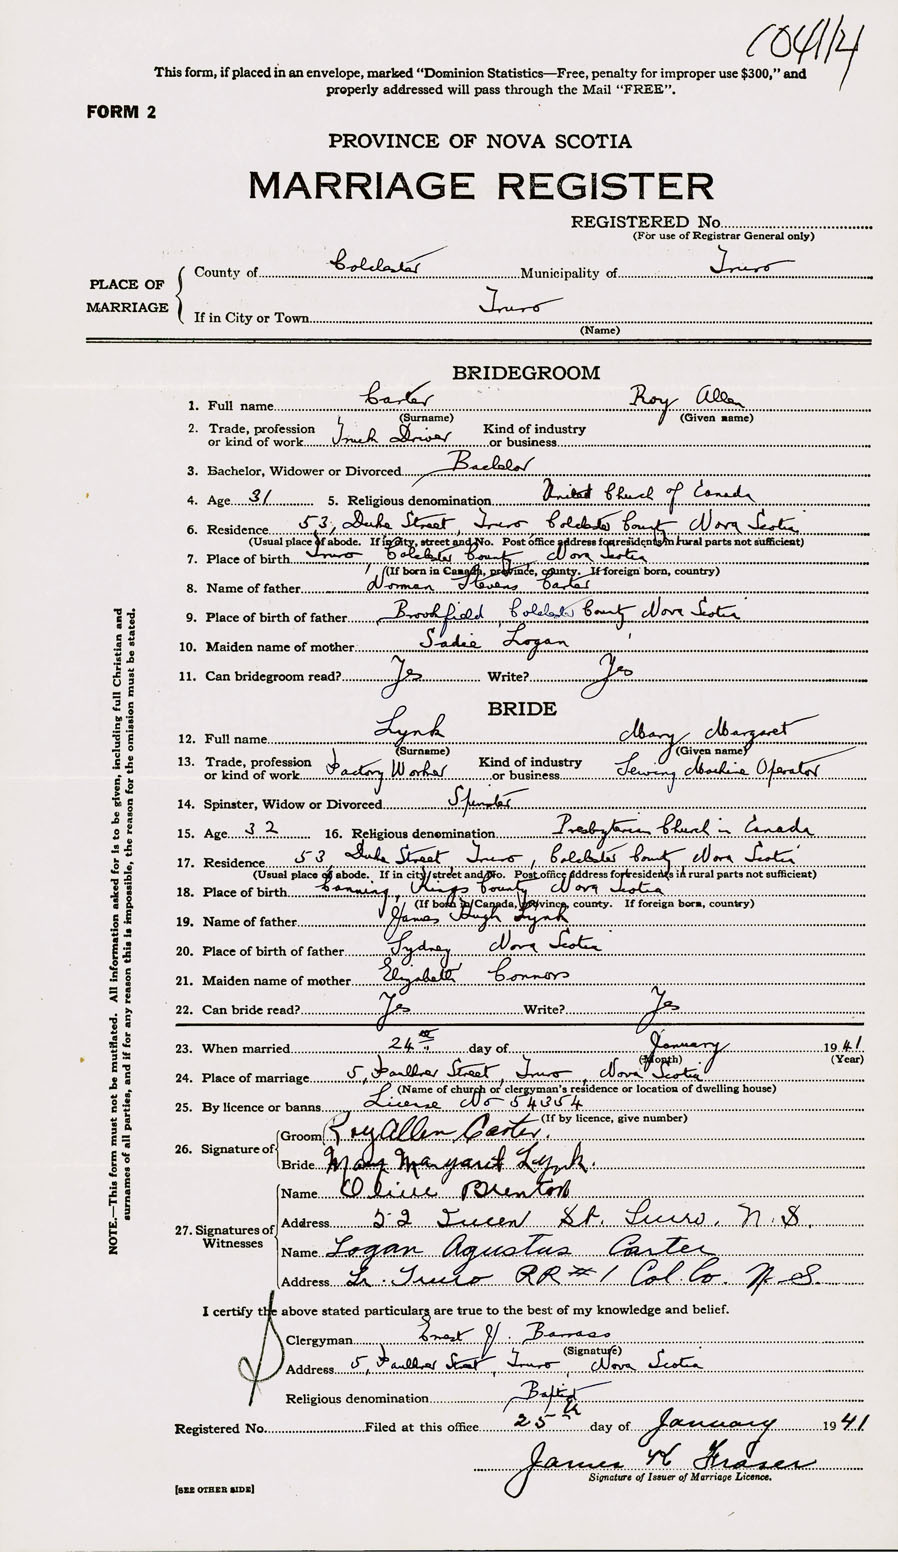 This form, if placed in an envelope, marked "Dominion Statistics—Free, penalty for improper use $300," and
properly addressed will pass through the Mail "FREE".
FORM 2
PROVINCE OF NOVA SCOTIA
MARRIAGE REGISTER
REGISTERED No.
(For use of Registrar General only)
PLACE OF MARRIAGE
County of Colchester Municipality of Truro
If in City or Town Truro
(Name)
BRIDEGROOM
1. Full name Carter Roy Allen
(Surname) (Given name)
2. Trade, profession or kind of work Truck Driver Kind of industry or business
3. Bachelor, Widower or Divorced Bachelor
4. Age 31 5. Religious denomination United Church of Canada
6. Residence 53, Duke Street, Truro Colchester County Nova Scotia
(Usual place of abode. If in city, street and No. Post office address for residents in rural parts not sufficient)
7. Place of birth Truro Colchester County Nova Scotia
(If born in Canada, province, county. If foreign born, country)
8. Name of father Norman Stevens Carter
9. Place of birth of father Brookfield, Colchester County Nova Scotia
10. Maiden name of mother Sadie Logan
11. Can bridegroom read? Yes Write? Yes
BRIDE
12. Full name Lynk Mary Margaret
(Surname) (Given name)
13. Trade, profession or kind of work Factory Worker Kind of industry or business Sewing Machine Operator
14. Spinster, Widow or Divorced Spinster
15. Age 32 16. Religious denomination Presbyterian Church in Canada
17. Residence 53, Duke Street Truro, Colchester County Nova Scotia
(Usual place of abode. If in city, street and No. Post office address for residents in rural parts not sufficient)
18. Place of birth Canning, Kings County Nova Scotia
(If born in Canada, province, county. If foreign born, country)
19. Name of father James Hugh Lynk
20. Place of birth of father Sydney Nova Scotia
21. Maiden name of mother Elizabeth Connors
22. Can bride read? Yes Write? Yes
23. When married 24th day of January 1941
(Month) (Year)
24. Place of marriage 5, Faulkner Street, Truro, Nova Scotia
(Name of church or clergyman's residence or location of dwelling house)
25. By licence or banns License No 54354
(If by licence, give number)
26. Signature of
Groom Roy Allen Carter.
Bride Mary Margaret Lynk.
27. Signatures of Witnesses
Name Olive Brenton
Address 52 Queen St. Truro, N.S.
Name Logan Agustus Carter
Address Lr. Truro RR#1 Col. Co. N.S.
I certify the above stated particulars are true to the best of my knowledge and belief.
Clergyman Ernest J. Barrass
(Signature)
Address 5, Faulkner Street, Truro, Nova Scotia
Religious denomination Baptist
Registered No. Filed at this office 25th day of January 1941
James K Fraser
Signature of Issuer of Marriage Licence.
[SEE OTHER SIDE]
NOTE.—This form must not be mutilated. All information asked for is to be given, including full Christian and
surnames of all parties, and if for any reason this is impossible, the reason for the omission must be stated.